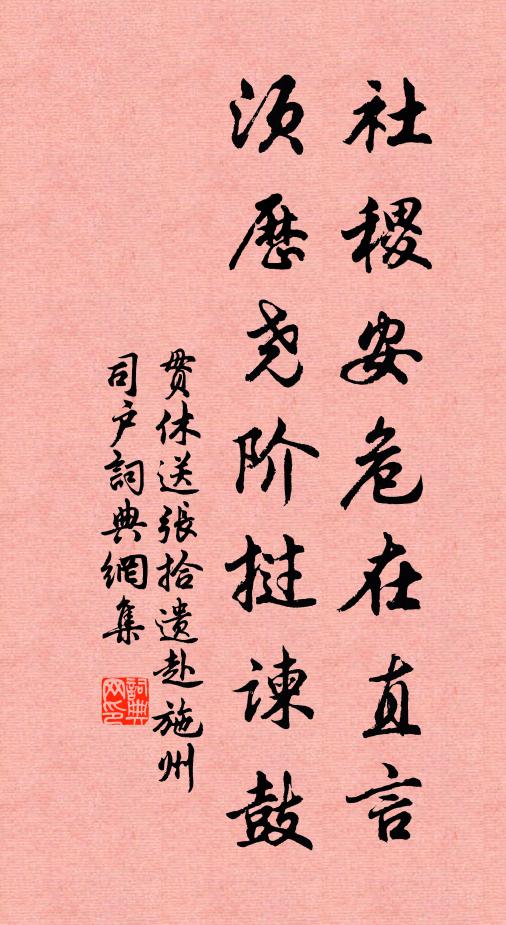 社稷安危在直言
须历尧阶挝谏鼓
贯休送張拾遗赴施州
司户詞典網集
詞典
网印